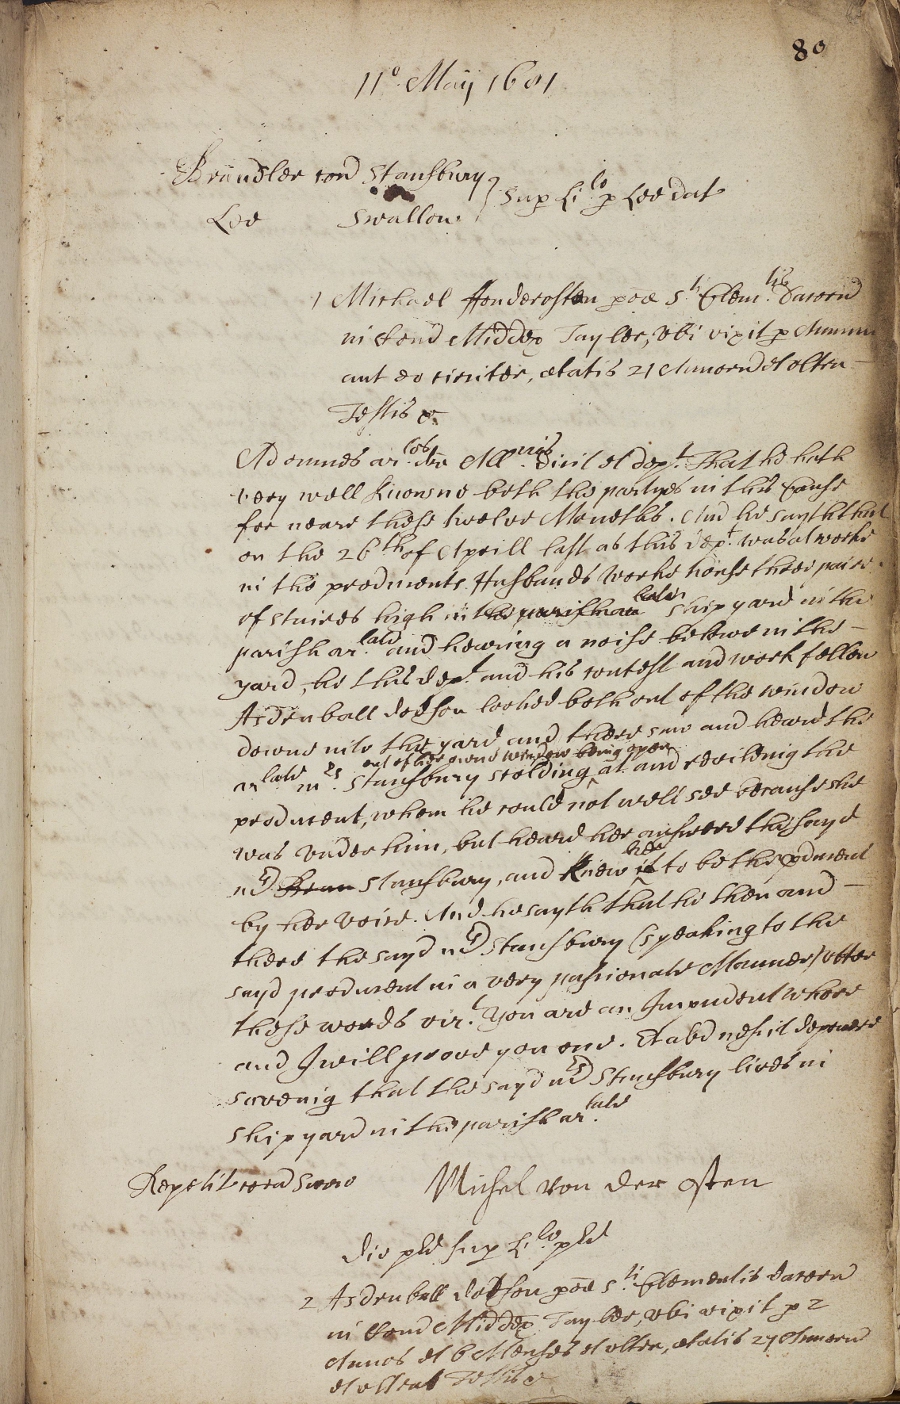 80
11º May 1681
Brandler con Stansbury
Lee Swallow
Sup Li:lo p Lee dat
1 Michael Honderosten poe Sti Clemtis Dacorū
in Com̄ Middx Taylor, vbi vixit p Annum
aut eo circiter, ætatis 21 Annorū et ultra
Testis &c
Ad omnes ar:los Allnis dicit et dept. That he hath
very well knowne both the partyes in this cause
for neare these twelve Moneths. And he sayth that
on the 26th of Aprill last as this dept. was at worke
in the producents Husbands worke house three paire
of staires high in the parish ar late ship yard in the
parish ar:late and heareing a noise belowe in the
yard, he this dept. and his contest and work fellow
Ardenball Dodson looked both out of the window
downe into the yard and there saw and heard the
out of her owne window being open
ar:late ms. Stansbury scolding at and revileing the
producent, whom he could not well see because she
was under him, but heard her answere the sayd
ms Stansbury, and knew it her to be the pducent
by her voice. And he sayth that he then and
there the sayd ms Stansbury (speaking to the
sayd producent in a very passionate Manner) utter
these words vizt. You are an Impudent whore
and I will prove you one. Et al'r nescit deponere
saveing that the sayd ms Stansbury lives in
ship yard in the parish ar:late
Repetit corā Surro
Michel von der osten
Die pd sup Li:lo pd
2 Ardenball Dodson poe Sti Clementis dacorū
in Com̄ Middx Taylor, vbi vixit p 2
Annos et 6 Menses et ultra, ætatis 27 Annorū
et ultra Testis &c